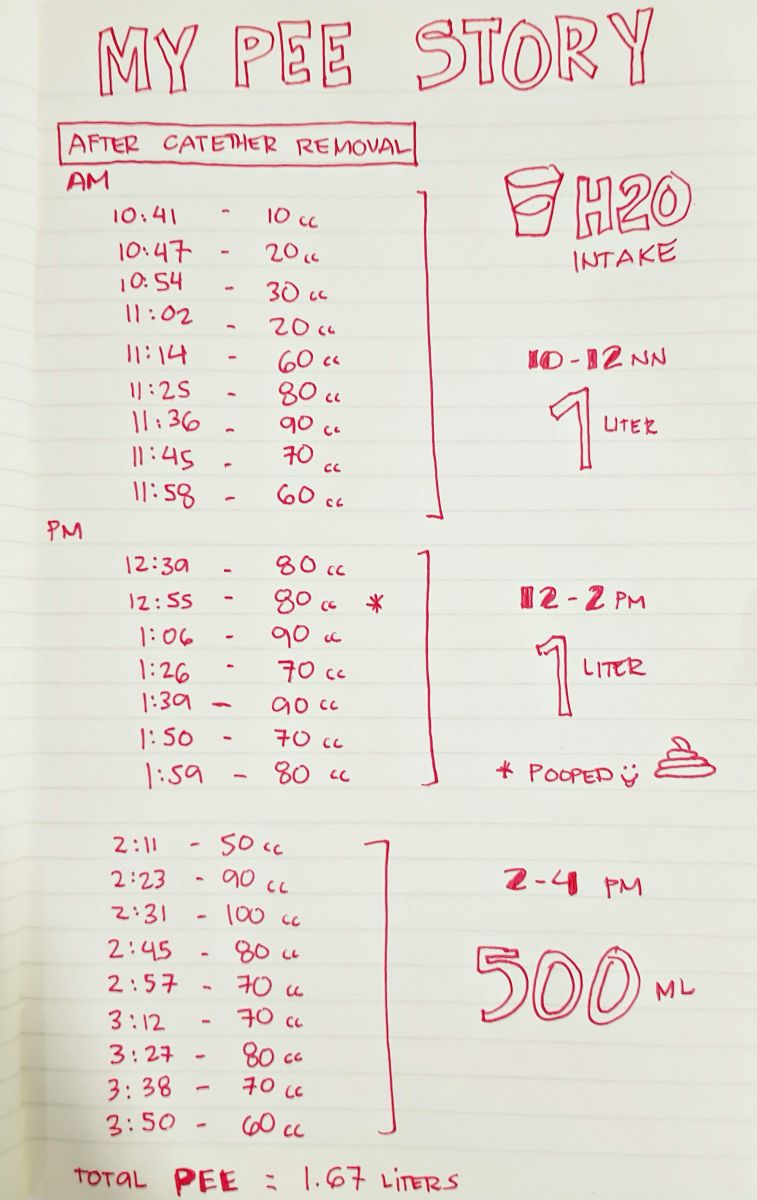 MY PEE STORY
AFTER CATETHER REMOVAL
AM
10:41 - 10 cc
10:47 - 20 cc
10:54 - 30 cc
11:02 - 20 cc
11:14 - 60 cc
11:25 - 80 cc
11:36 - 90 cc
11:45 - 70 cc
11:58 - 60 cc
H2O
INTAKE
10-12 NN
1 LITER
PM
12:39 - 80 cc
12:55 - 80 cc *
1:06 - 90 cc
1:26 - 70 cc
1:39 - 90 cc
1:50 - 70 cc
1:59 - 80 cc
12-2 PM
1 LITER
* POOPED
2:11 - 50 cc
2:23 - 90 cc
2:31 - 100 cc
2:45 - 80 cc
2:57 - 70 cc
3:12 - 70 cc
3:27 - 80 cc
3:38 - 70 cc
3:50 - 60 cc
2-4 PM
500 ML
TOTAL PEE = 1.67 LITERS